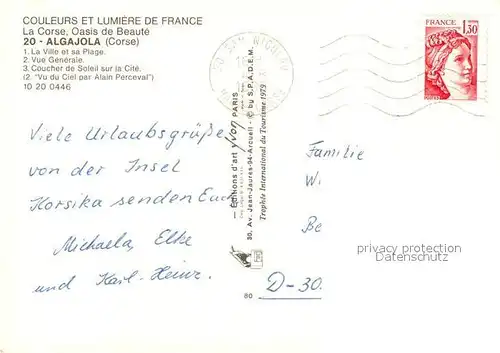 COULEURS ET LUMIÈRE DE FRANCE
La Corse, Oasis de Beauté
20 - ALGAJOLA (Corse)
1. La Ville et sa Plage.
2. Vue Générale.
3. Coucher de Soleil sur la Cité.
(2. "Vu du Ciel par Alain Perceval")
10 20 0446
Viele Urlaubsgrüße
von der Insel
Korsika senden Euch
Michaela, Elke
und Karl-Heinz.
Éditions d'art yvon PARIS
30, Av. Jean-Jaurès-94-Arcueil - © by S.P.A.D.E.M.
Trophée International du Tourisme 1979
80
FRANCE
1,30
Familie
W
Be
D-30
privacy protection
Datenschutz